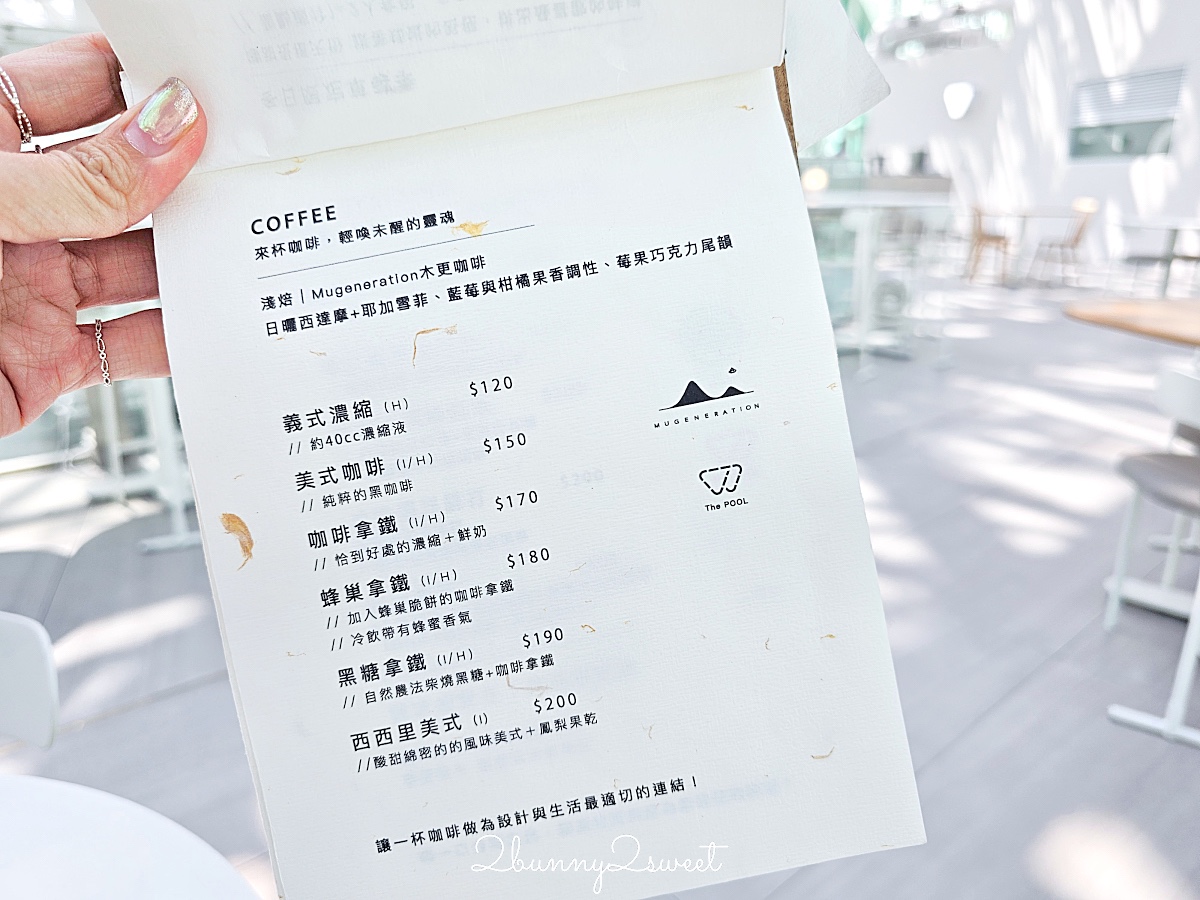 COFFEE
來杯咖啡，輕喚未醒的靈魂
淺焙｜Mugeneration木更咖啡
日曬西達摩+耶加雪菲、藍莓與柑橘果香調性、莓果巧克力尾韻
義式濃縮 (H) $120
// 約40cc濃縮液
美式咖啡 (I/H) $150
// 純粹的黑咖啡
咖啡拿鐵 (I/H) $170
// 恰到好處的濃縮＋鮮奶
蜂巢拿鐵 (I/H) $180
// 加入蜂巢脆餅的咖啡拿鐵
// 冷飲帶有蜂蜜香氣
黑糖拿鐵 (I/H) $190
// 自然農法柴燒黑糖+咖啡拿鐵
西西里美式 (I) $200
//酸甜綿密的的風味美式＋鳳梨果乾
MUGENERATION
The POOL
讓一杯咖啡做為設計與生活最適切的連結！
2bunny2sweet